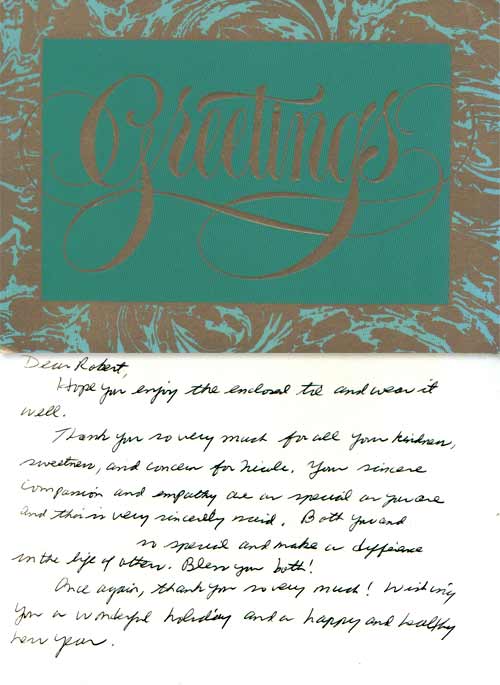 Greetings
Dear Robert,
Hope you enjoy the enclosed tie and wear it
well.
Thank you so very much for all your kindness,
sweetness, and concern for Nicole. Your sincere
compassion and empathy are as special as you are
and this is very sincerely said. Both you and
so special and make a difference
in the life of others. Bless you both!
Once again, thank you so very much! Wishing
you a wonderful holiday and a happy and healthy
New Year.